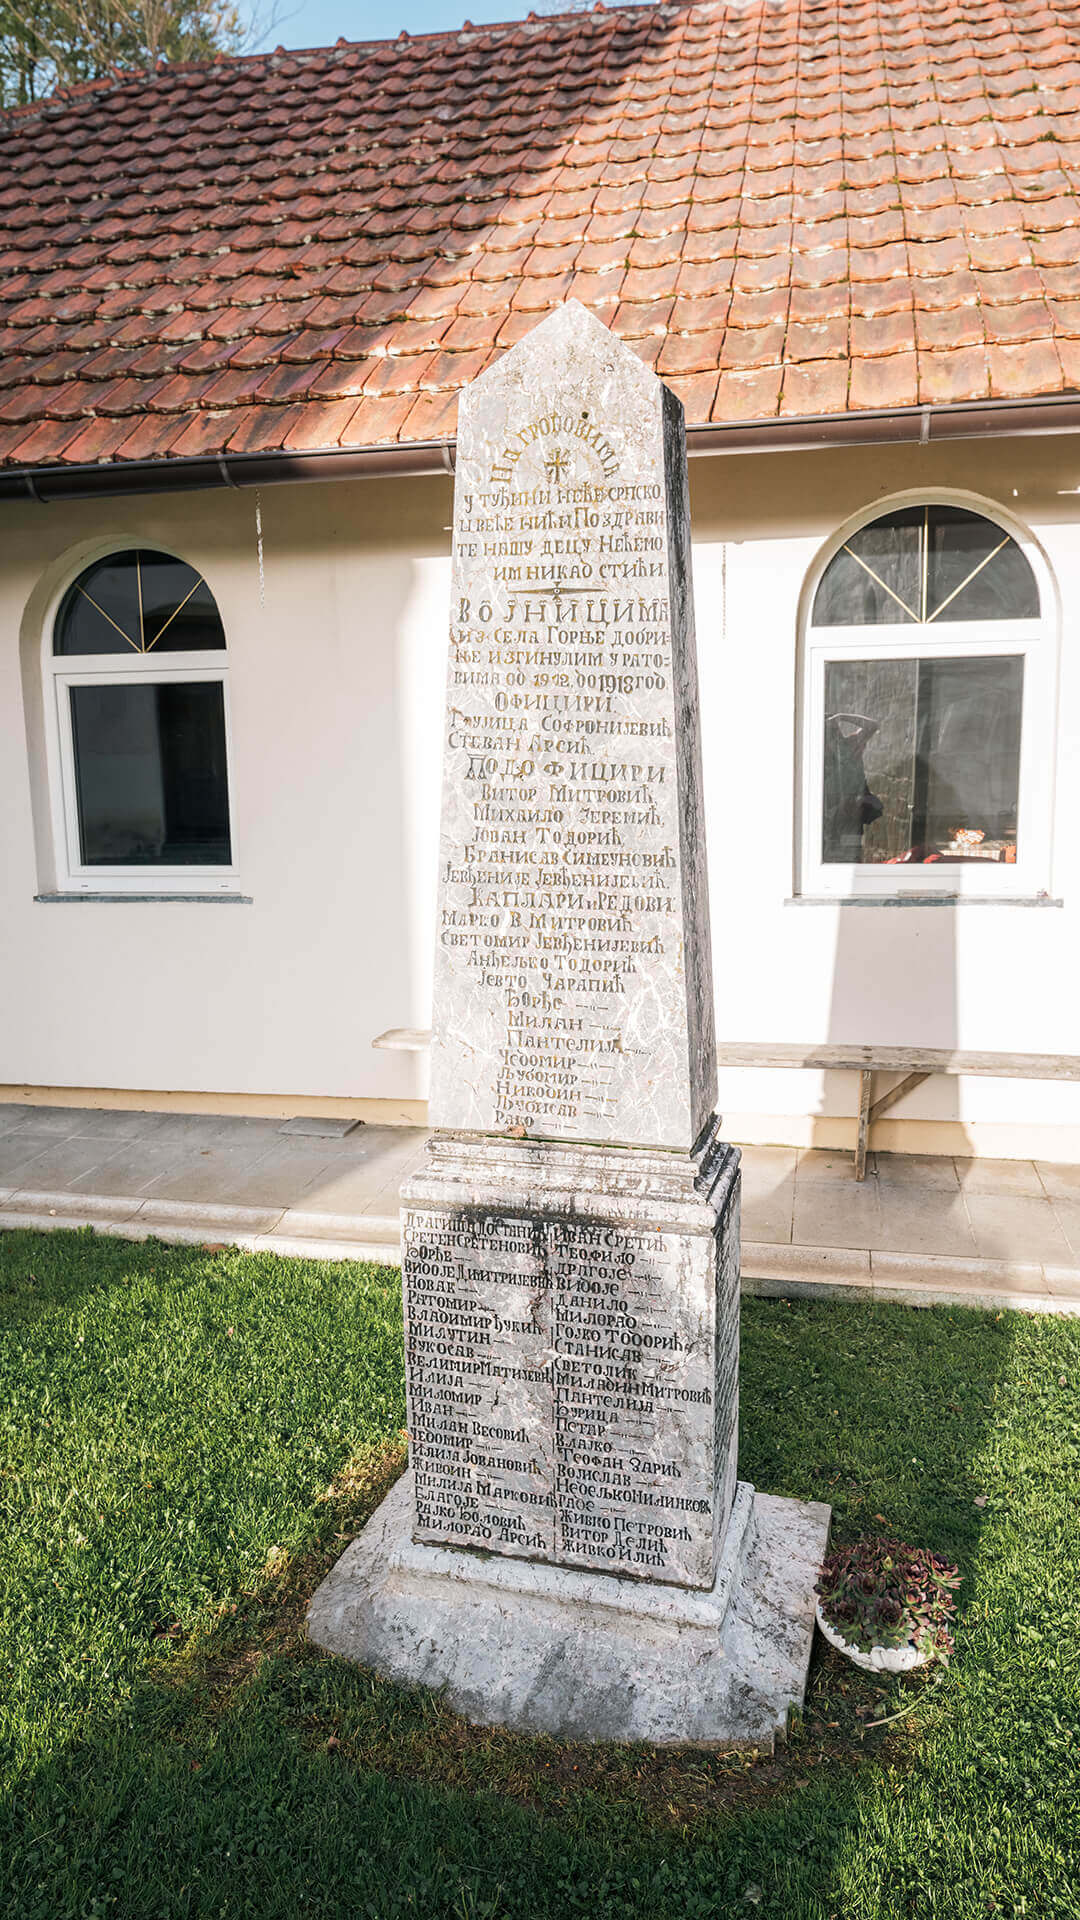 НА ГРОБОВИМА
У ТУЂИНИ НЕЋЕ СРПСКО
ЦВЕЋЕ НИЋИ ПОЗДРАВИ
ТЕ НАШУ ДЕЦУ НЕЋЕМО
ИМ НИКАД СТИЋИ.
ВОЈНИЦИМА
ИЗ СЕЛА ГОРЊЕ ДОБРИ-
ЊЕ ИЗГИНУЛИМ У РАТО-
ВИМА ОД 1912. ДО 1918 ГОД
ОФИЦИРИ.
СОФРОНИЈЕВИЋ
СТЕВАН АРСИЋ.
ПОДОФИЦИРИ
ВИТОР МИТРОВИЋ
МИХАИЛО ЈЕРЕМИЋ,
ЈОВАН ТОДОРИЋ
БРАНИСАВ СИМЕУНОВИЋ
ЈЕВЂЕНИЈЕ ЈЕВЂЕНИЈЕВИЋ.
КАПЛАРИ И РЕДОВИ.
МАРКО В. МИТРОВИЋ
СВЕТОМИР ЈЕВЂЕНИЈЕВИЋ
АНЂЕЉКО ТОДОРИЋ
ЈЕВТО ЧАРАПИЋ
ЂОРЂЕ —„—
МИЛАН —„—
ПАНТЕЛИЈА —„—
ЧЕДОМИР —„—
ЉУБОМИР —„—
НИКОДИН —„—
ЉУБИСАВ —„—
РАКО —„—
ДРАГИША ДОСТАНИЋ
СРЕТЕН СРЕТЕНОВИЋ
ЂОРЂЕ —„—
ВИДОЈЕ ДИМИТРИЈЕВИЋ
НОВАК —„—
РАТОМИР —„—
ВЛАДИМИР ЂУКИЋ
МИЛУТИН —„—
ВУКОСАВ —„—
ВЕЛИМИР МАТИЈЕВИЋ
ИЛИЈА —„—
МИЛОМИР —„—
ИВАН —„—
МИЛАН ВЕСОВИЋ
ЧЕДОМИР —„—
ИЛИЈА ЈОВАНОВИЋ
ЖИВОИН —„—
МИЛИЈА МАРКОВИЋ
БЛАГОЈЕ —„—
РАЈКО ЂОЛОВИЋ
МИЛОРАД АРСИЋ
ИВАН СРЕТИЋ
ТЕОФИЛО —„—
ДРАГОЈЕ —„—
ВИДОЈЕ —„—
ДАНИЛО —„—
МИЛОРАД —„—
ГОЈКО ТОДОРИЋ
СТАНИСАВ —„—
СВЕТОЛИК —„—
МИЛАДИН МИТРОВИЋ
ПАНТЕЛИЈА —„—
ЂУРИЦА —„—
ПЕТАР —„—
ВЛАЈКО —„—
ТЕОФАН ЗАРИЋ
ВОЈИСЛАВ —„—
НЕДЕЉКО МИЛИНКОВ
РАДЕ —„—
ЖИВКО ПЕТРОВИЋ
ВИТОР ДЕЛИЋ
ЖИВКО ИЛИЋ